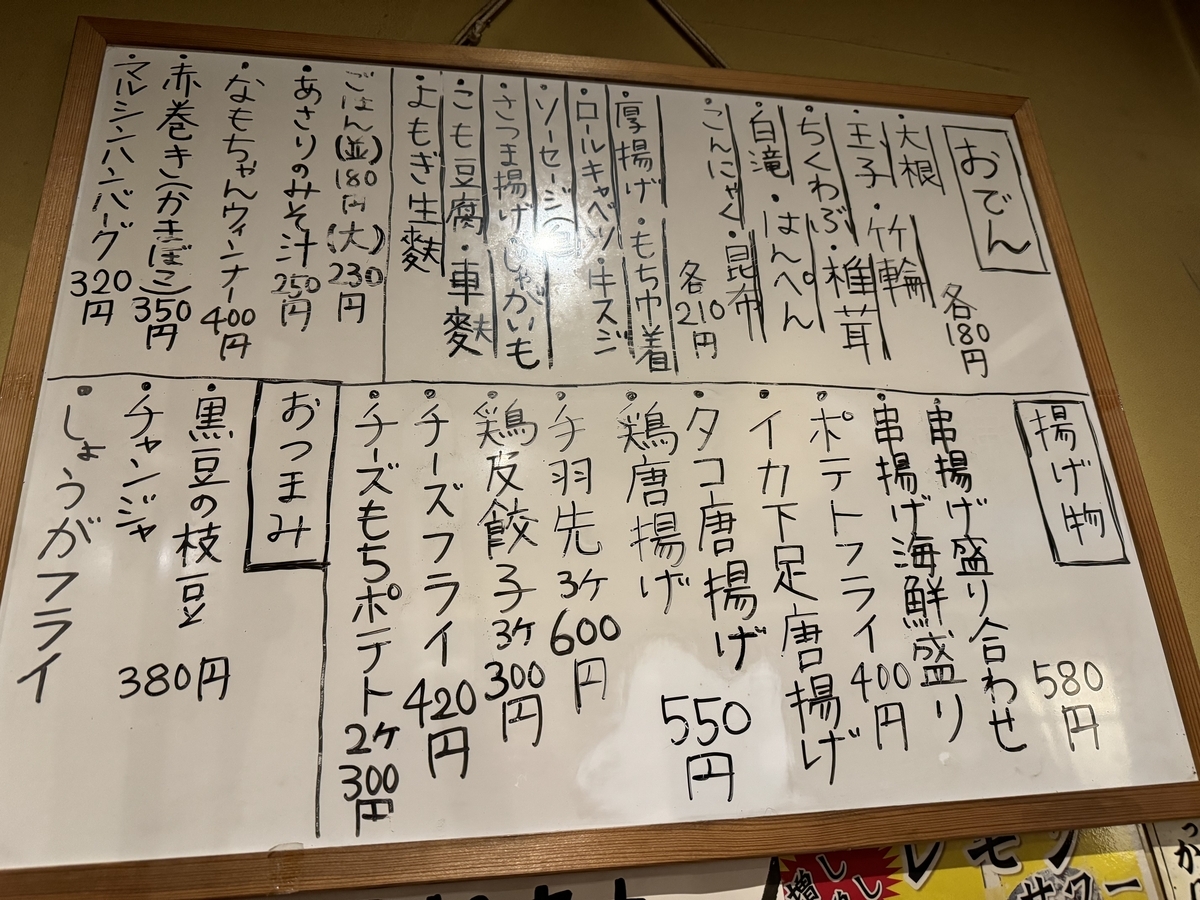 おでん
各180円
・大根
・玉子・竹輪
・ちくわぶ・椎茸
・白滝・はんぺん
・こんにゃく・昆布
各210円
・厚揚げ・もち巾着
・ロールキャベツ・牛スジ
・ソーセージ
・さつま揚げ・じゃがいも
・こも豆腐・車麩
・よもぎ生麩
・ごはん(並)180円(大)230円
・あさりのみそ汁250円
・なもちゃんウィンナー400円
・赤巻き(かまぼこ)350円
・マルシンハンバーグ320円
揚げ物
580円
・串揚げ盛り合わせ
・串揚げ海鮮盛り
・ポテトフライ400円
・イカ下足唐揚げ
・タコ唐揚げ
550円
・鶏唐揚げ
・手羽先3ケ600円
・鶏皮餃子3ケ300円
・チーズフライ420円
・チーズもちポテト2ケ300円
おつまみ
・黒豆の枝豆
380円
・チャンジャ
・しょうがフライ
増し
レモン
サワー